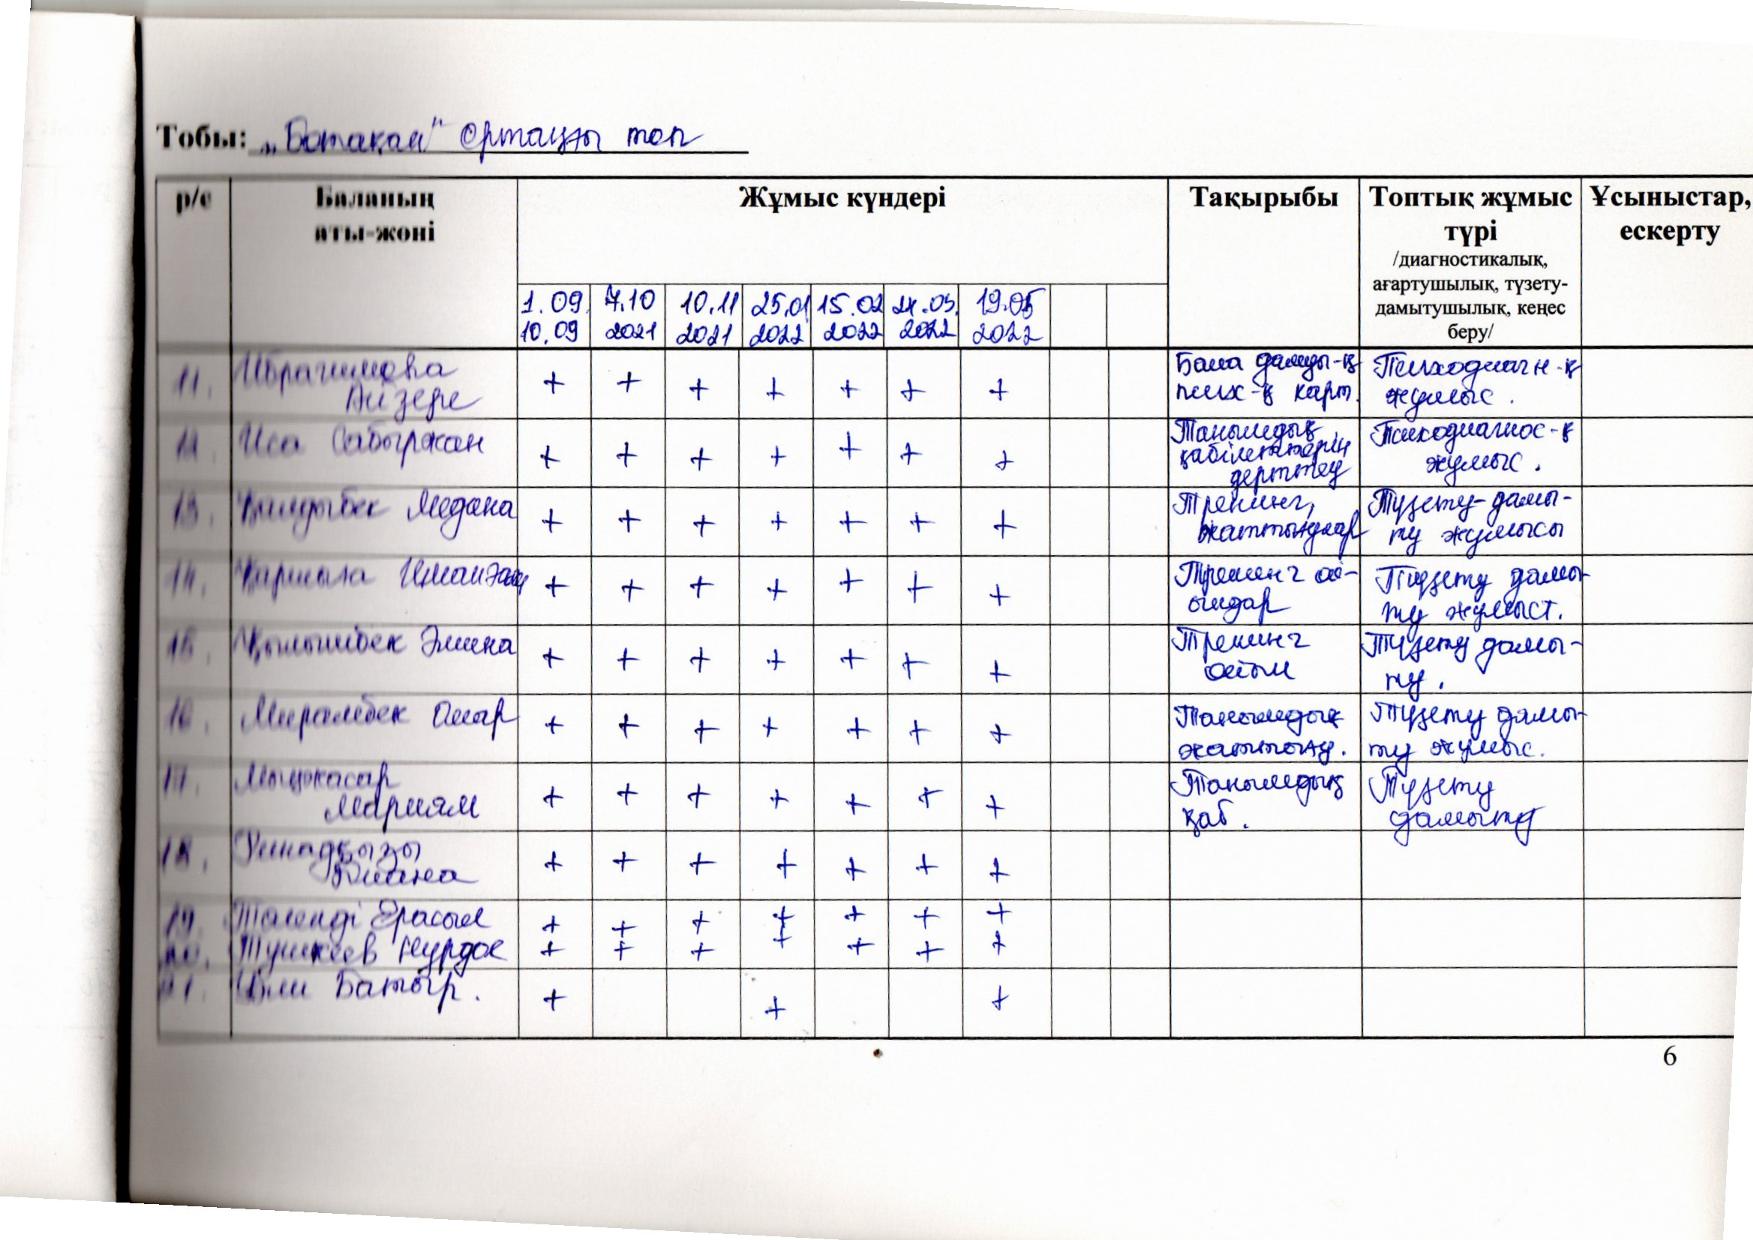 Тобы: „Ботақан" ортаңғы топ
р/с Баланың аты-жөні Жұмыс күндері Тақырыбы Топтық жұмыс түрі /диагностикалық, ағартушылық, түзету-дамытушылық, кеңес беру/ Ұсыныстар, ескерту
1.09 10.09 7.10 2021 10.11 2021 25.01 2022 15.02 2022 2022 19.05 2022
11. Ибрагимова Айзере + + + + + + + Бала дамды-қ псих-қ карт. Психодиагн-қ жұмыс.
Иса Сабыржан + + + + + + + Танымдық қабілеттерін зерттеу Психодиагнос-қ жұмыс.
13. Медана + + + + + + + Тренинг, жаттығулар Түзету-дамы-ту жұмысы
14. + + + + + + + Тренинг ой-ындар Түзету дамы-ту жұмыст.
15. Қылышбек Әмина + + + + + + + Тренинг ойын Түзету дамы-ту.
16. Мирамбек Омар + + + + + + + Танымдық жаттығу. Түзету дамы-ту жұмыс.
17. Мыңжасар Мариям + + + + + + + Танымдық қаб. Түзету дамыту
18. + + + + + + +
19. Төленді Ерасыл + + + + + + +
20. + + + + + + +
21. Батыр. + + +
6